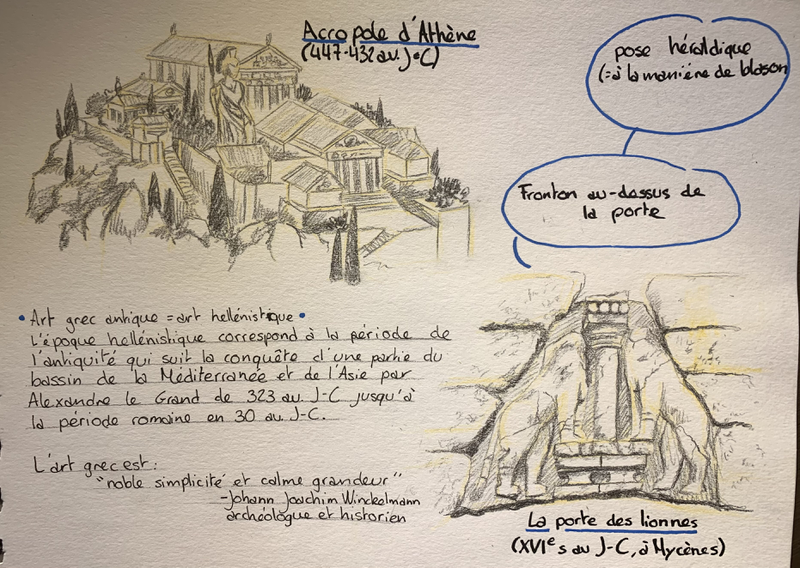 Acropole d'Athène
(447-432 au. J-C)
pose héraldique
(=à la manière de blason
Fronton au-dessus de
la porte
• Art grec antique = art hellénistique •
L'époque hellénistique correspond à la période de
l'antiquité qui suit la conquête d'une partie du
bassin de la Méditerranée et de l'Asie par
Alexandre le Grand de 323 au. J-C jusqu'à
la période romaine en 30 au J-C.
L'art grec est :
"noble simplicité et calme grandeur"
-Johann Joachim Winckelmann
archéologue et historien
La porte des lionnes
(XVIe s au J-C, à Mycènes)